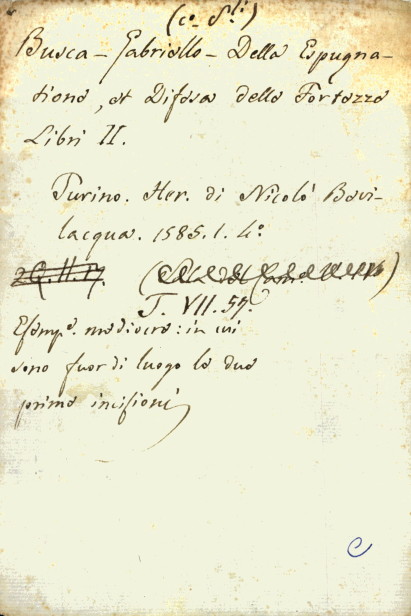 (co. Sli.)
Busca - Gabriello - Della Espugna-
tione, et Difesa delle Fortezze
Libri II.
Turino. Her. di Nicolò Bevi-
lacqua. 1585. 1. 4o.
T. VII. 57.
Esempe. mediocre: in cui
sono fuor di luogo le due
prime incisioni
C